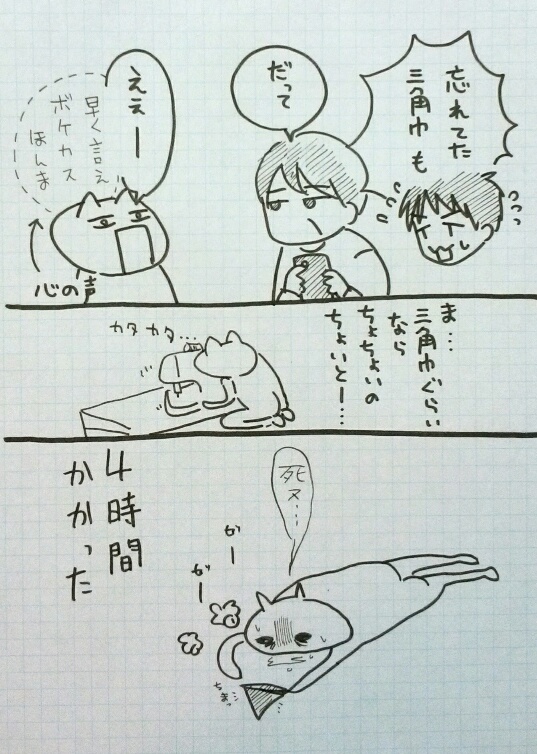 忘れてた
三角巾も
だって
ええー
早く言え
ボケカス
ほんま
心の声
ま…
三角巾ぐらい
なら
ちょちょいの
ちょいとー…
カタカタ…
死ヌ…
4時間
かかった
かー
がー
ちまっ